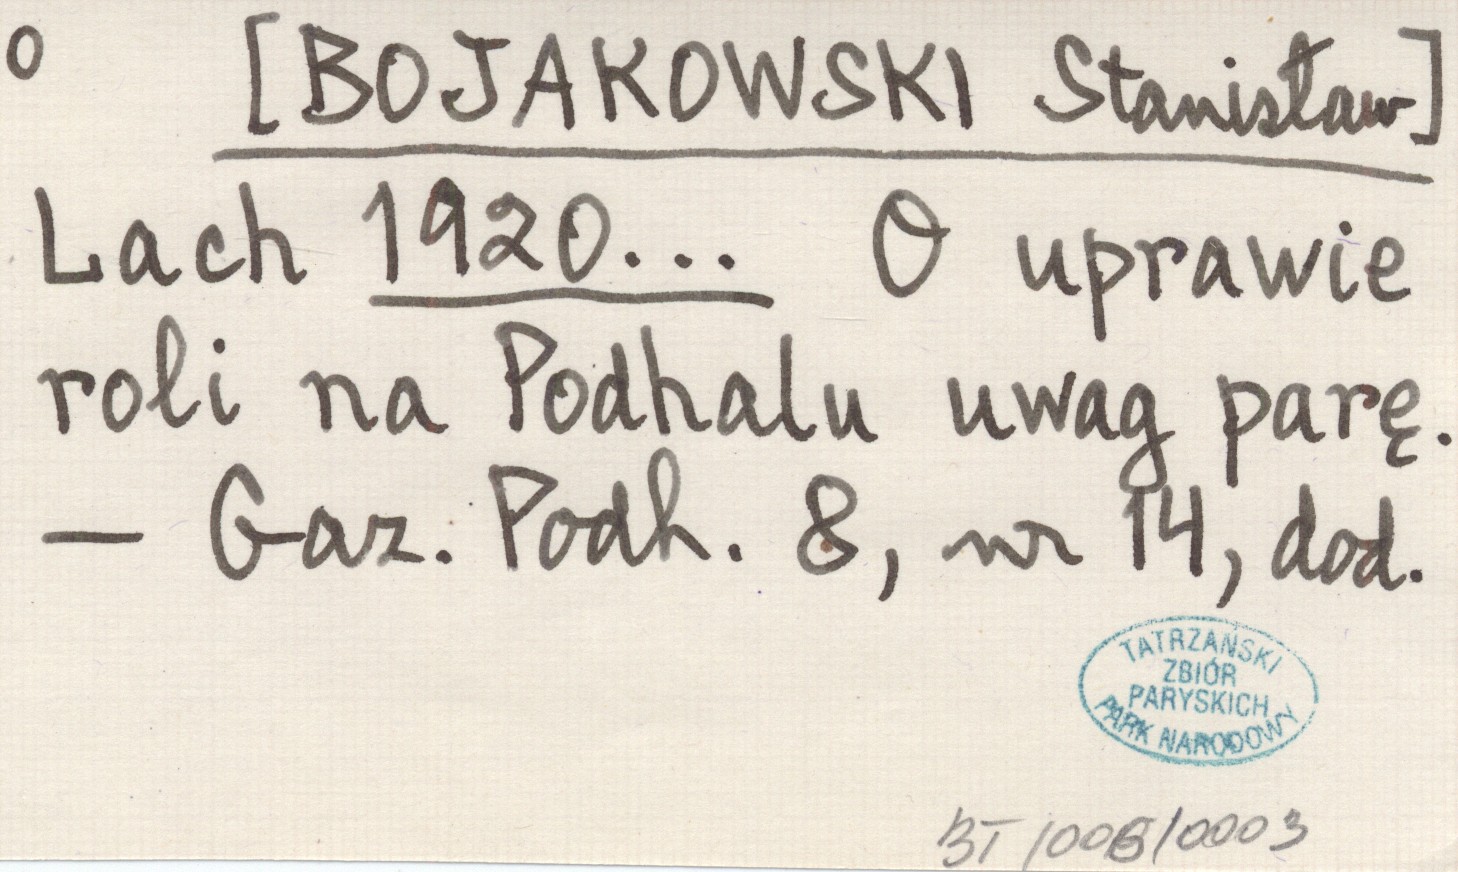 o [BOJAKOWSKI Stanisław]
Lach 1920... O uprawie
roli na Podhalu uwag parę.
— Gaz. Podh. 8, nr 14, dod.
TATRZAŃSKI
ZBIÓR
PARYSKICH
PARK NARODOWY
BT/006/0003